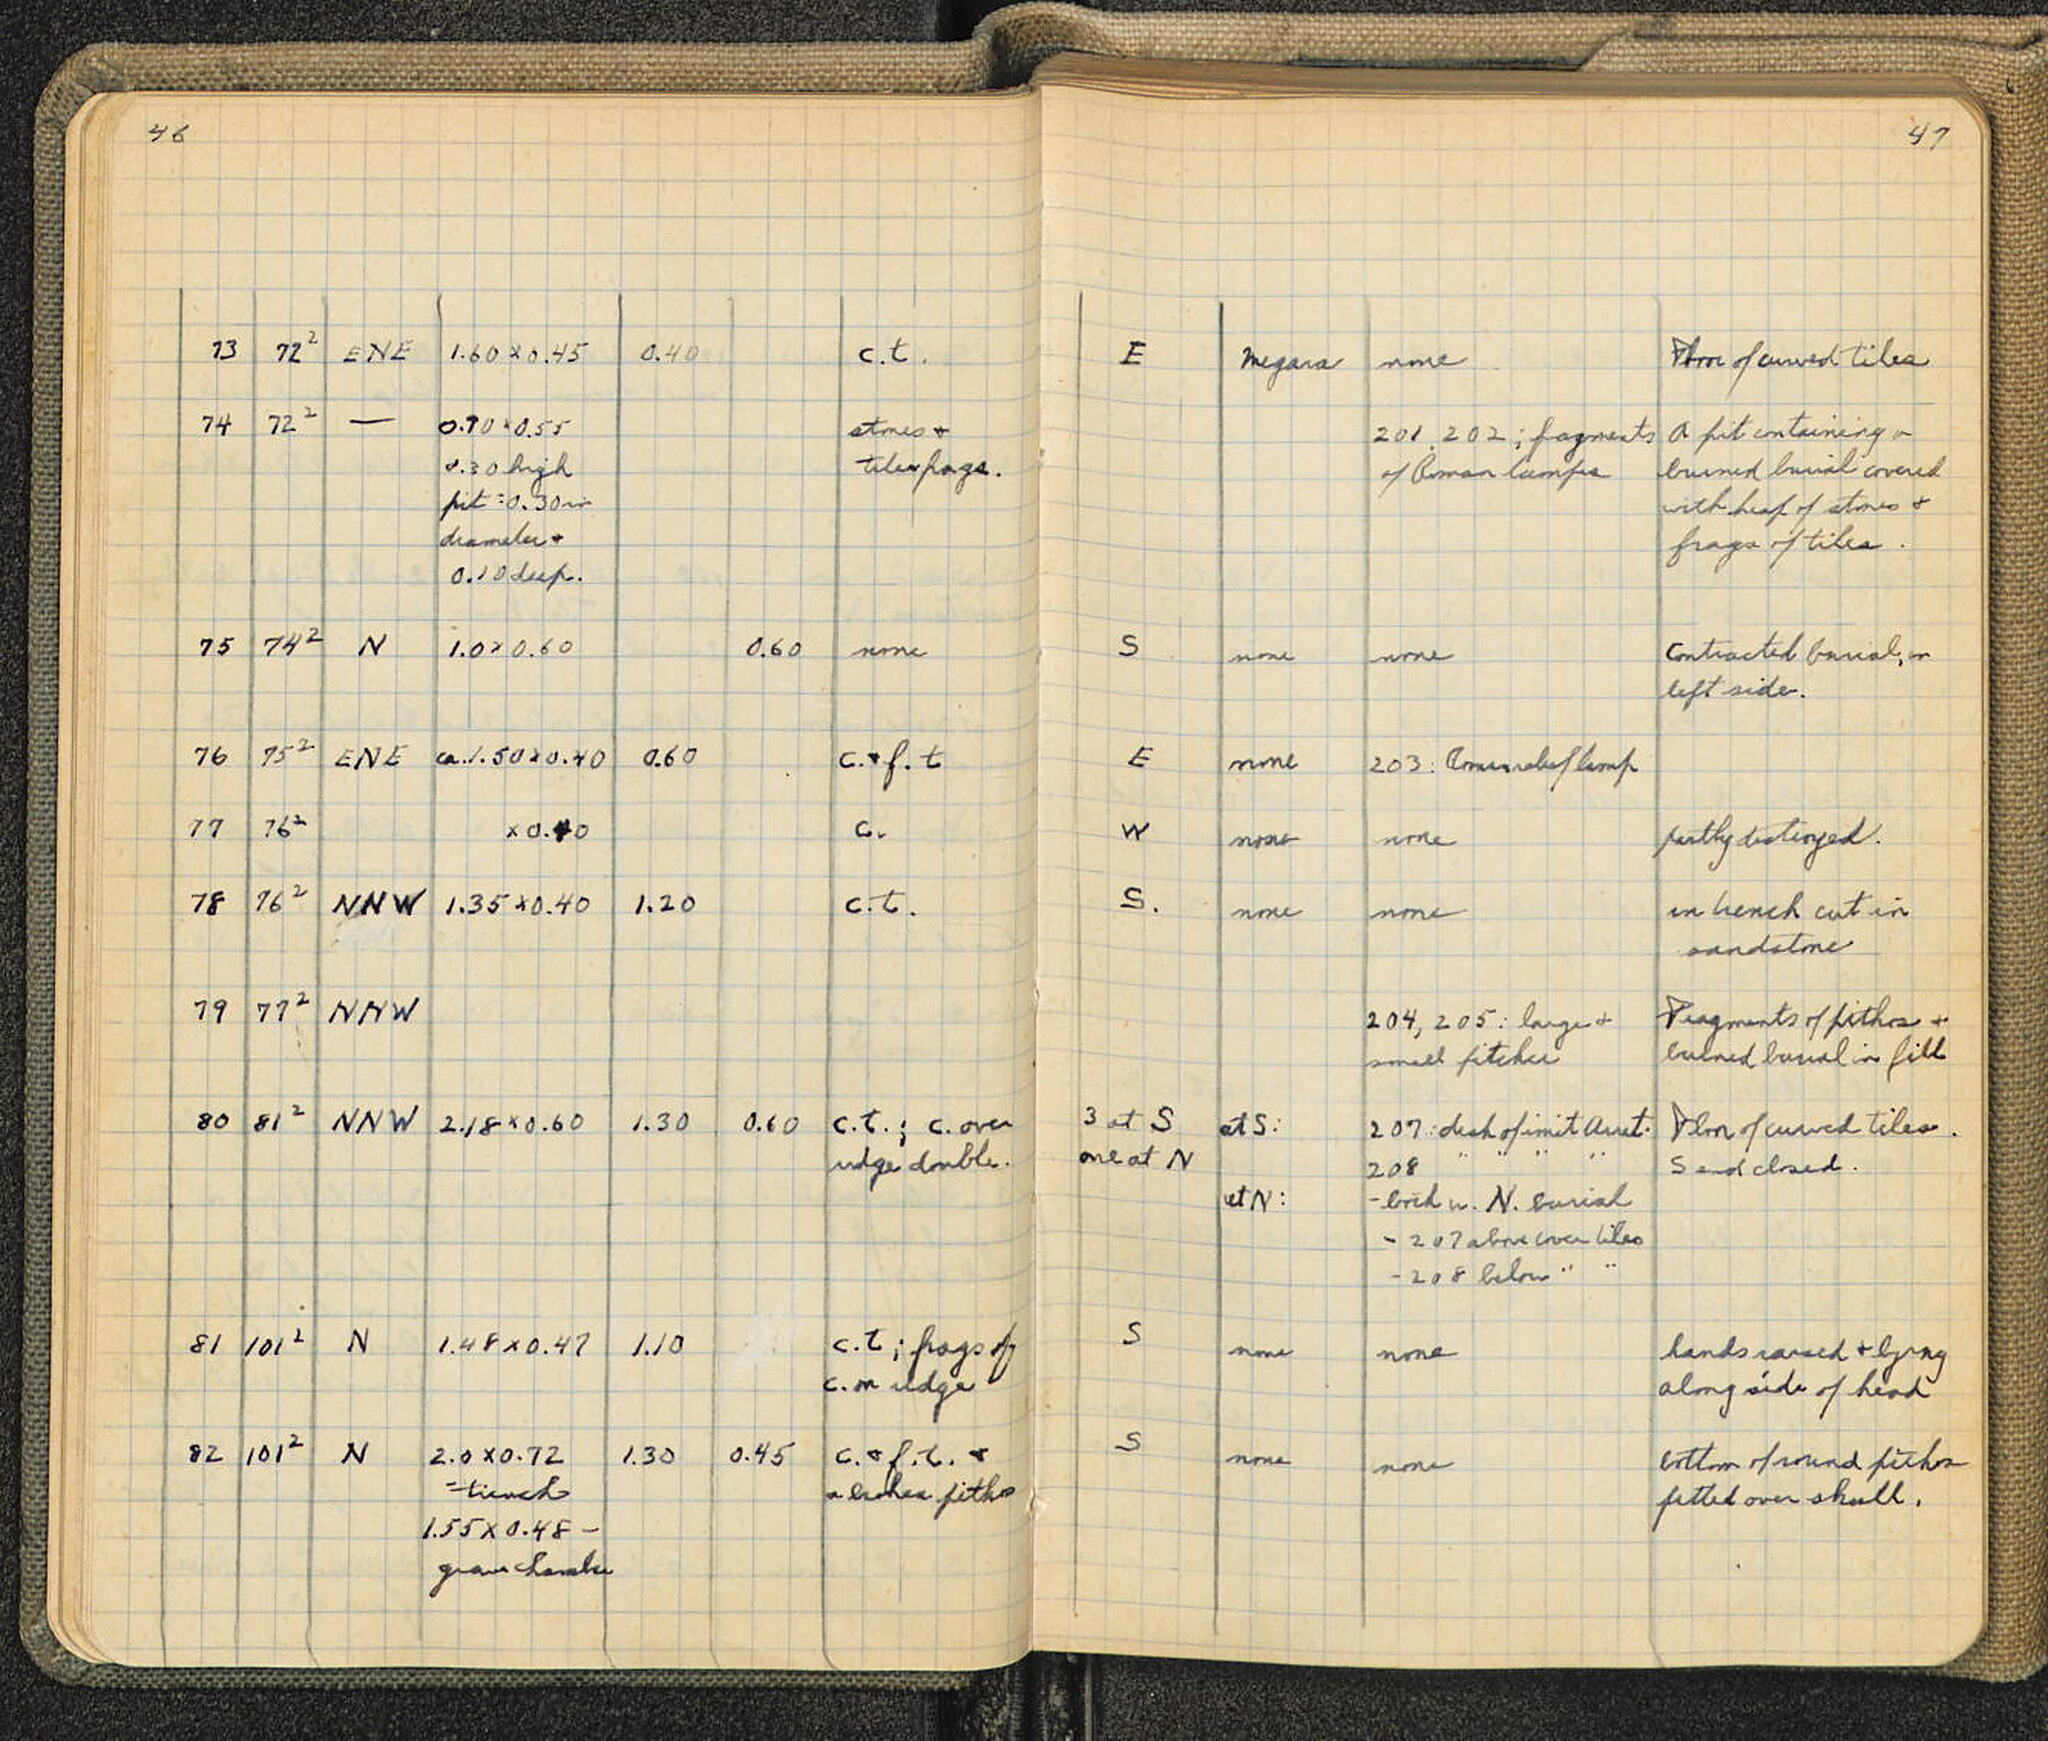 46
73 72² ENE 1.60 × 0.45 0.40 c.t.
74 72² — 0.70 × 0.55 stones +
×.30 high tile frags.
pit = 0.30 in
diameter +
0.10 deep.
75 74² N 1.0 × 0.60 0.60 none
76 75² ENE ca. 1.50 × 0.40 0.60 c. + f. t
77 76² × 0.40 c.
78 76² NNW 1.35 × 0.40 1.20 c.t.
79 77² NNW
80 81² NNW 2.18 × 0.60 1.30 0.60 c.t.; c. over
ridge double.
81 101² N 1.48 × 0.47 1.10 c.t; frags of
c. on ridge
82 101² N 2.0 × 0.72 1.30 0.45 c. + f.t. +
= trench a broken pithos
1.55 × 0.48 –
grave chamber
47
E Megara none Floor of curved tiles
201, 202; fragments A pit containing a
of Roman lamps burned burial covered
with heap of stones +
frags of tiles.
S none none Contracted burial, on
left side.
E none 203: Roman relief lamp
W none none partly destroyed.
S. none none in trench cut in
sandstone
204, 205: large + Fragments of pithos +
small pitcher burned burial in fill
3 at S at S: 207: dish of imit Arret. Floor of curved tiles.
one at N 208 " " " " S end closed.
at N: – both w. N. burial
– 207 above cover tiles
– 208 below " "
S none none hands raised + lying
along side of head
S none none bottom of round pithos
fitted over skull.